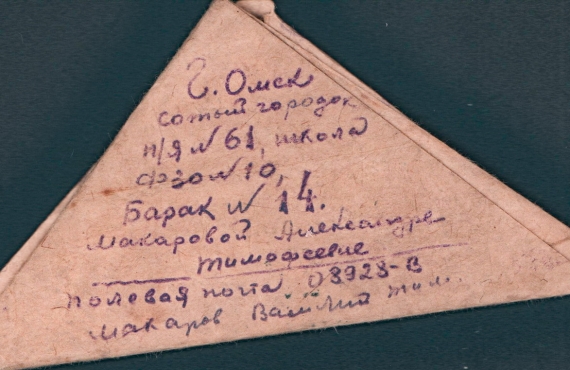 г. Омск
сотый городок
п/я № 61, школа
ФЗО № 10,
Барак № 14.
Макаровой Александре
Тимофеевне
полевая почта 08928-В
Макаров Василий Тим.